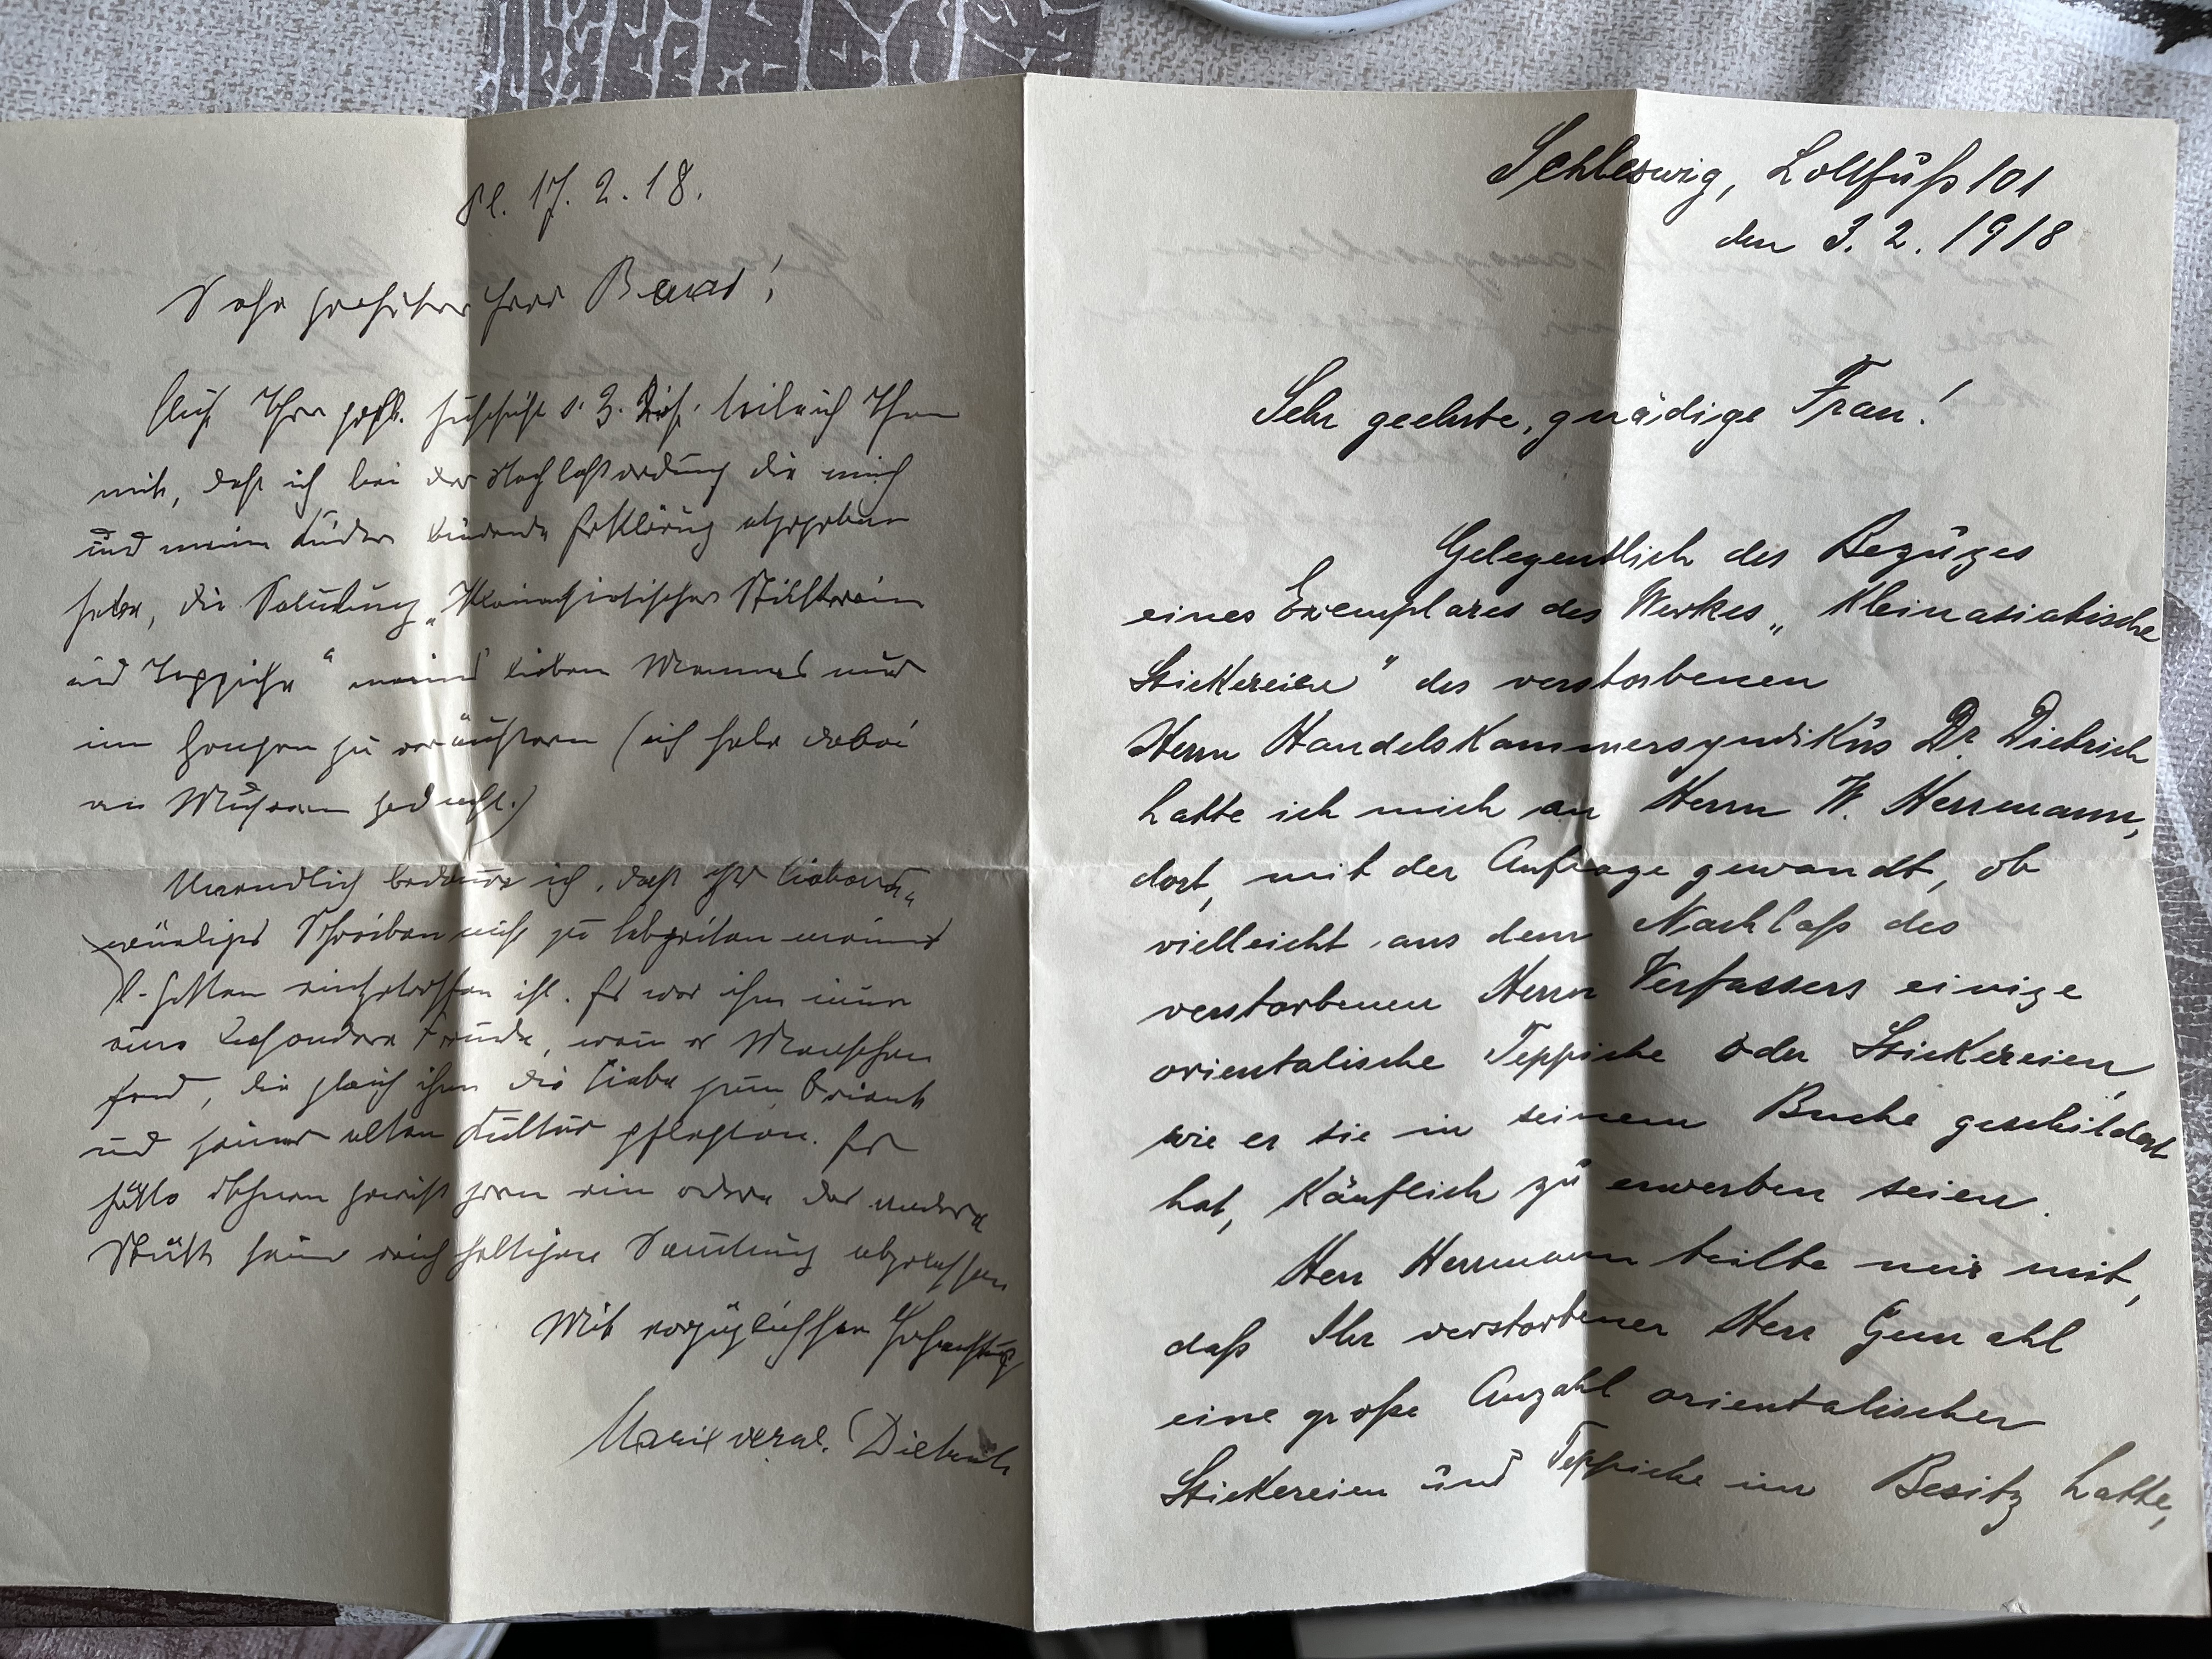 Pl. 17. 2. 18.
Sehr geehrter Herr
Auf Ihre gefl. Zuschrift v. 3. ds. teile ich Ihnen
mit, daß ich bei der Nachlaßordnung die mich
und meine Kinder bindende Erklärung abgegeben
habe, die Sammlung „Kleinasiatischer Stickereien
und Teppiche“ meines lieben Mannes nur
im Ganzen zu veräußern (ich habe dabei
an Museen gedacht.)
Unendlich bedaure ich, daß Ihr liebens„
würdiges Schreiben nicht zu Lebzeiten meines
l. Gatten eingetroffen ist. Es war ihm immer
eine besondere Freude, wenn er Menschen
fand, die gleich ihm die Liebe zum Orient
und seiner alten Kultur pflegten. Er
hätte Ihnen gewiß gern ein oder das andere
Stück seiner reichhaltigen Sammlung abgelassen
Mit vorzüglicher Hochachtung
Marie verw. Dietrich
Schleswig, Lollfuß 101
den 3. 2. 1918
Sehr geehrte, gnädige Frau!
Gelegentlich des Bezuges
eines Exemplares des Werkes „Kleinasiatische
Stickereien“ des verstorbenen
Herrn Handelskammersyndikus Dr. Dietrich
hatte ich mich an Herrn W. Herrmann,
dort, mit der Anfrage gewandt, ob
vielleicht aus dem Nachlaß des
verstorbenen Herrn Verfassers einige
orientalische Teppiche oder Stickereien,
wie er sie in seinem Buche geschildert
hat, käuflich zu erwerben seien.
Herr Herrmann teilte mir mit,
daß Ihr verstorbener Herr Gemahl
eine große Anzahl orientalischer
Stickereien und Teppiche im Besitz hatte,